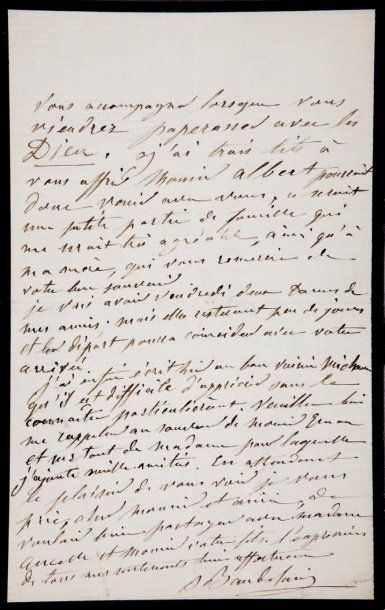 vous accompagne lorsque vous
viendrez paperasser avec les
Dieu. j'ai trois lits à
vous offrir Monsir Albert pourrait
donc venir avec vous, ce serait
une petite partie de famille qui
me serait très agréable, ainsi qu'à
ma mère, qui vous remercie de
votre bon souvenir
je vais avoir vendredi deux Dames de
mes amies. mais elles resteront peu de jours
et leur départ pourra coincider avec votre
arrivée.
J'ai enfin écrit hier au bon voisin
qu'il est difficile d'apprécier sans le
connaitre particulièrement. Veuillez bien
me rappeler au souvenir de Monsir
et surtout de madame pour laquelle
j'ajoute mille amitiés. En attendant
le plaisir de vous voir je vous
prie, cher monsir et ami, de
vouloir bien partager avec madame
Ancelle et Monsir votre fils l'expression
de tous mes sentiments bien affectueux